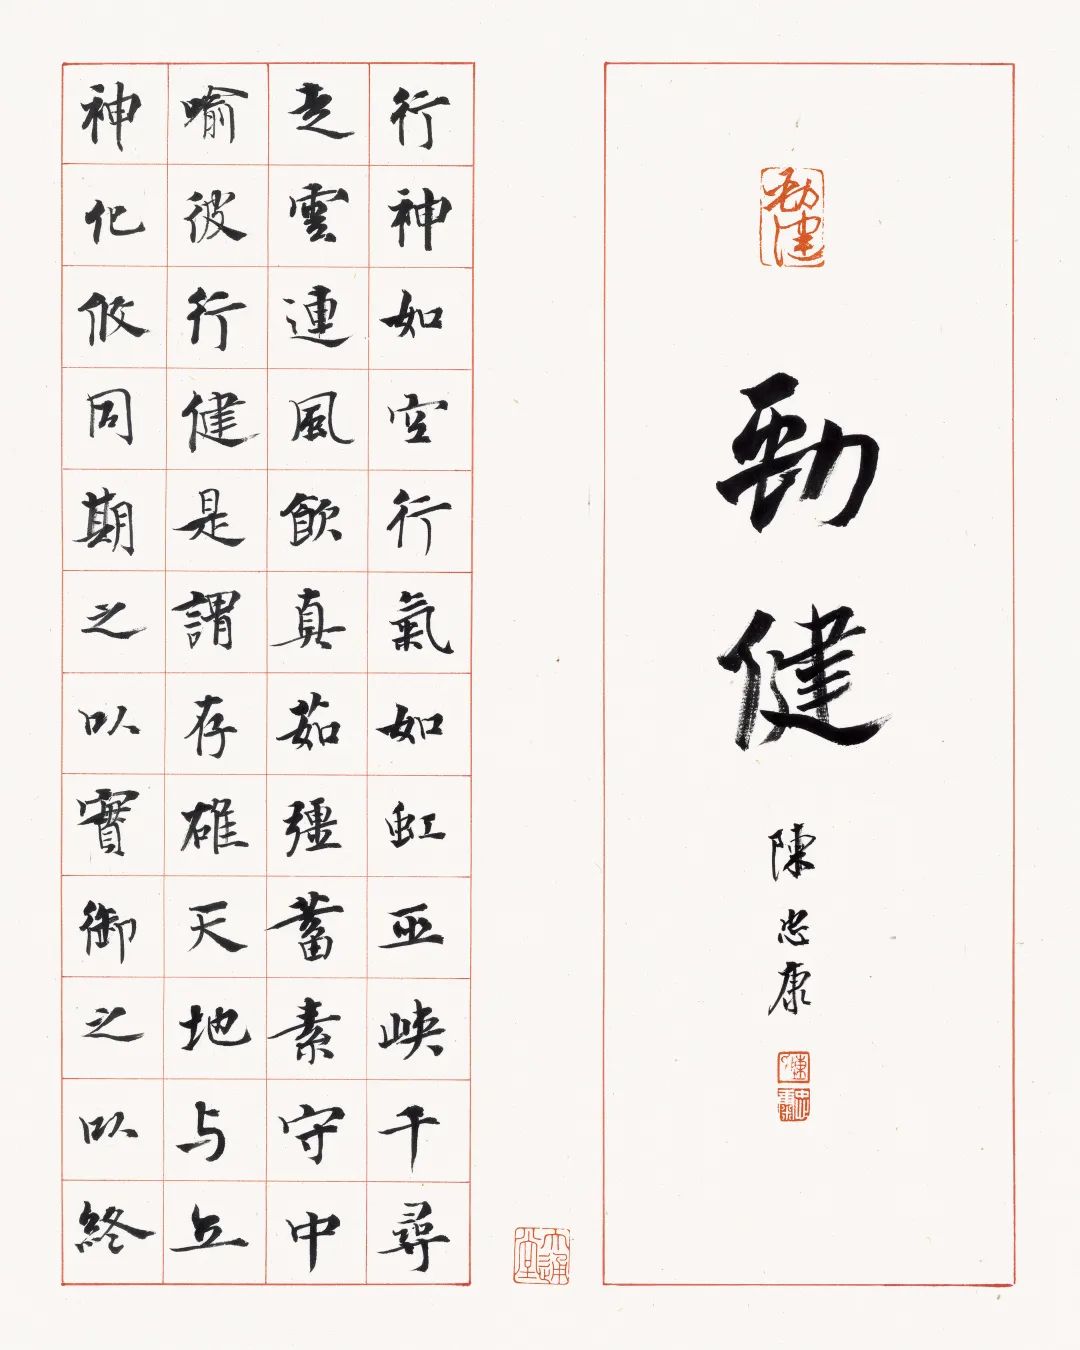 勁健
勁健
陳忠康
行神如空行氣如虹巫峽千尋
走雲連風飲真茹彊蓄素守中
喻彼行健是謂存雄天地与立
神化攸同期之以實御之以終